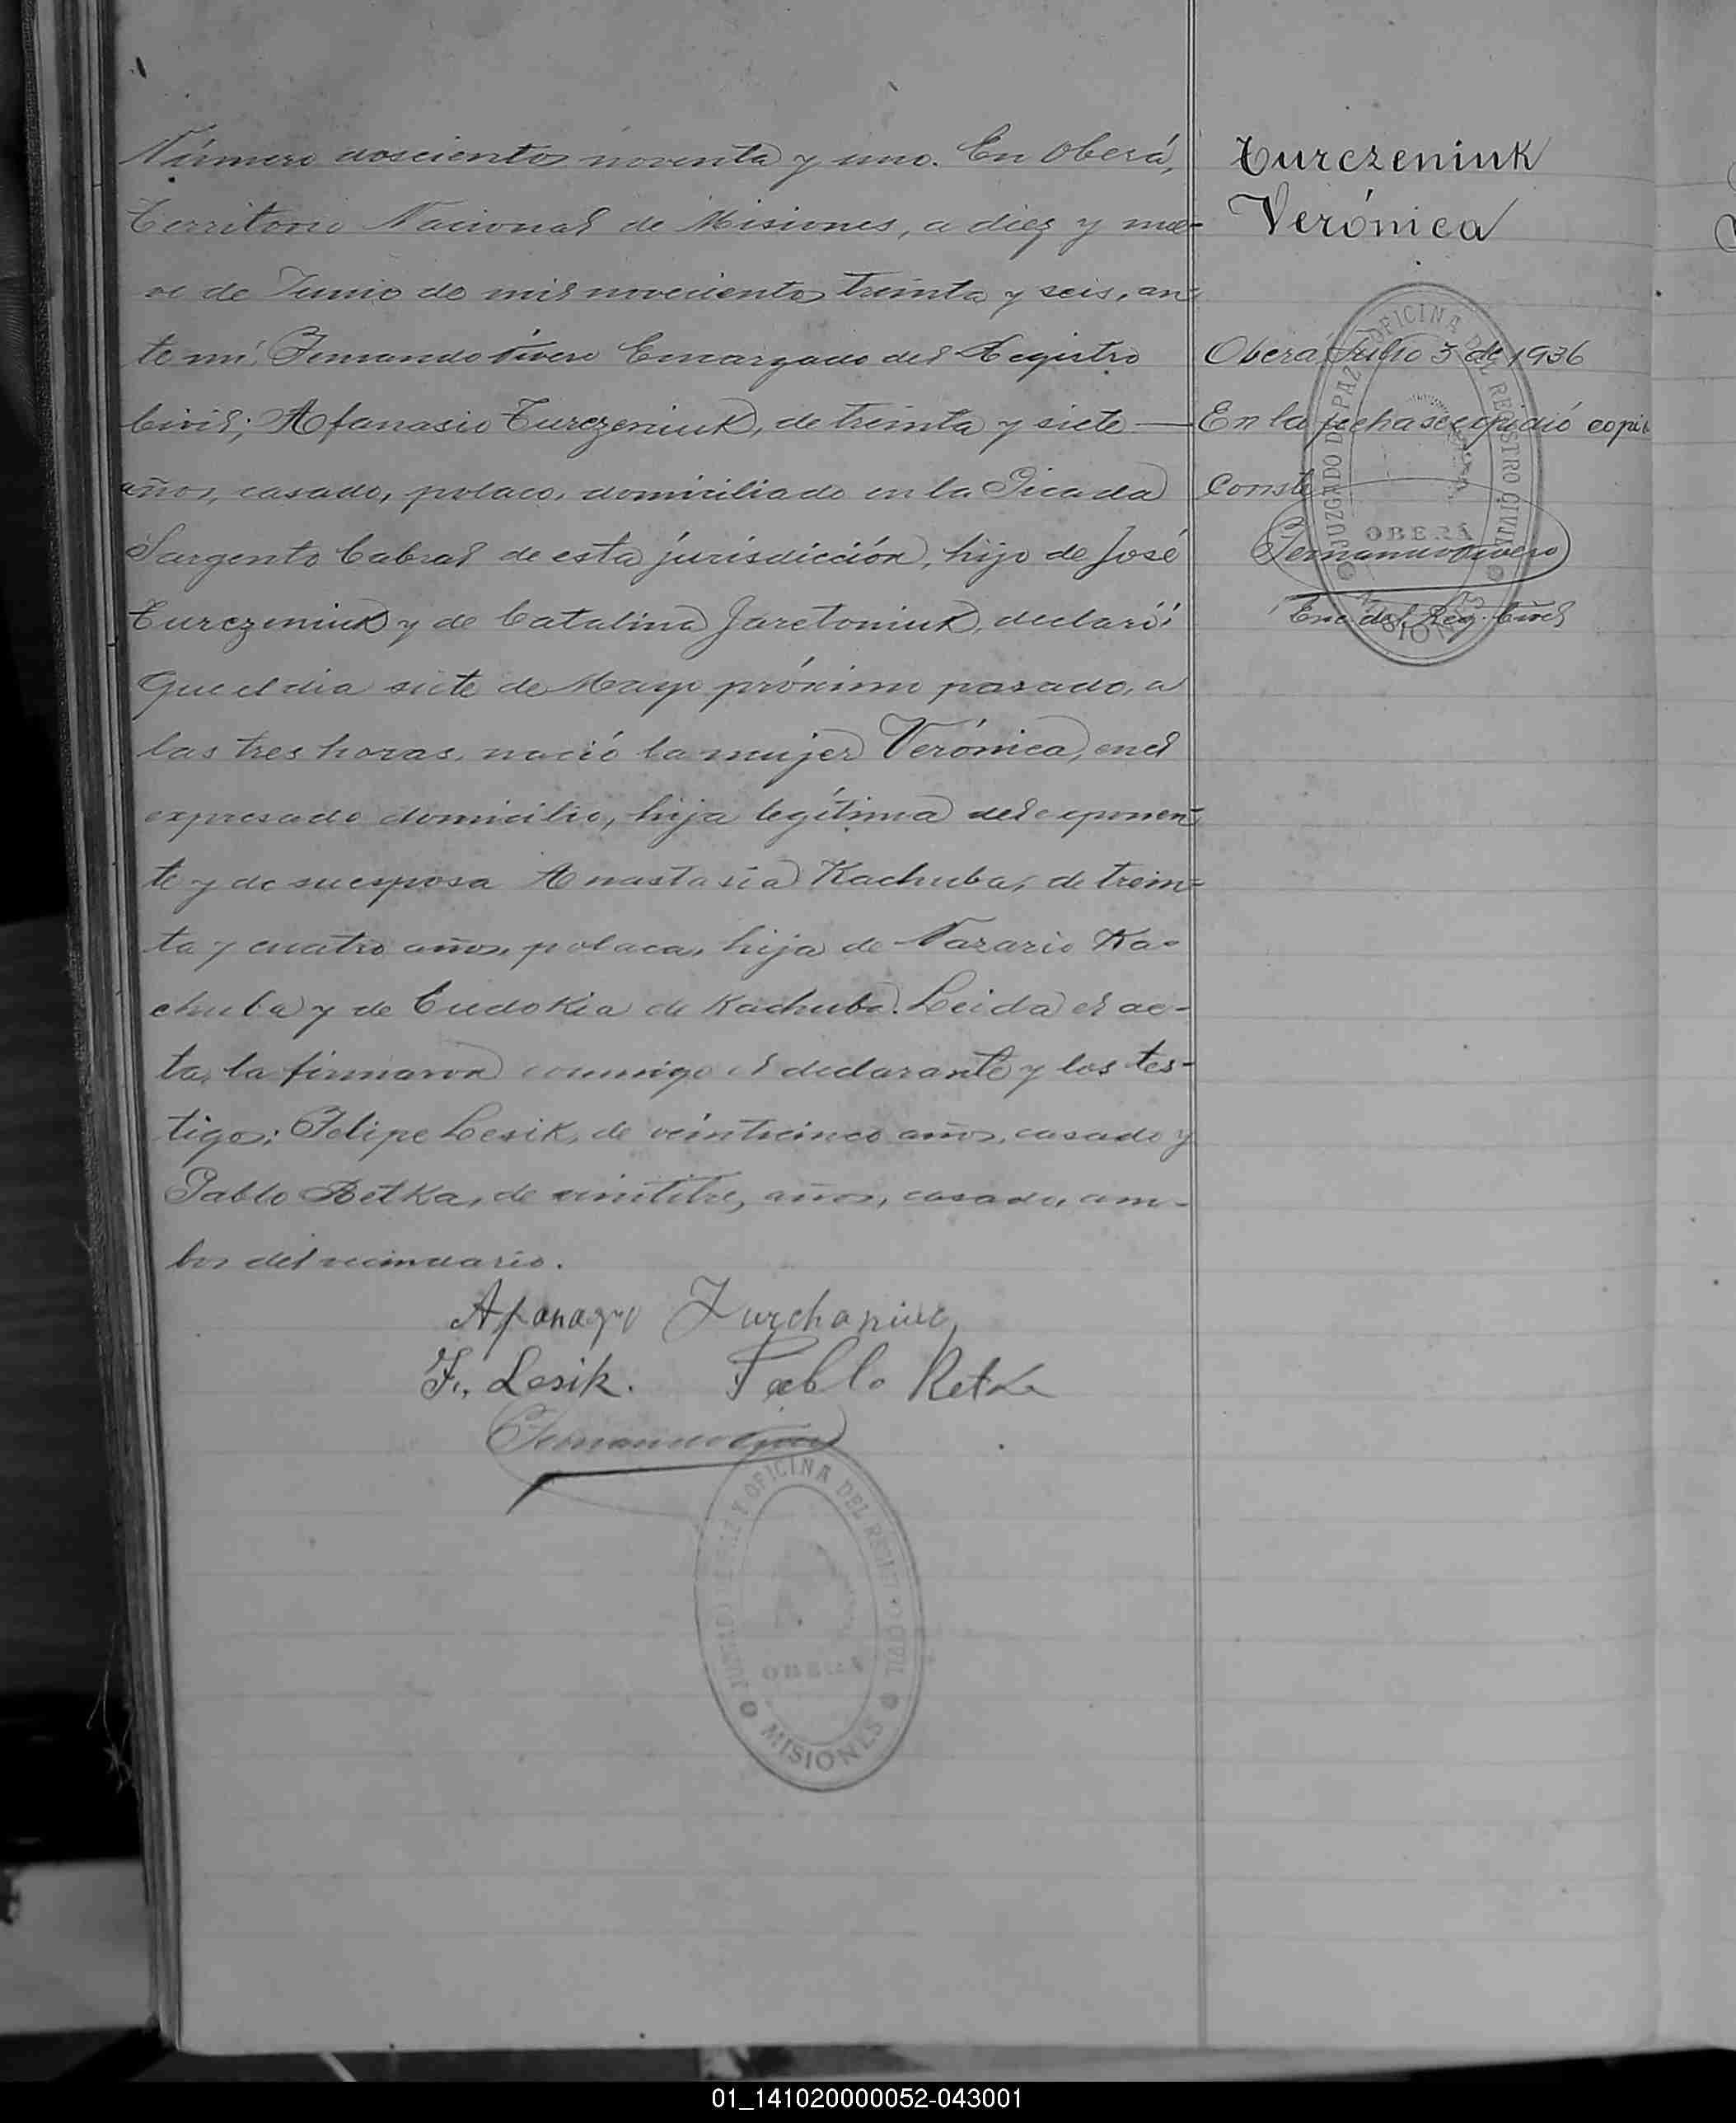 Número doscientos noventa y uno. En Oberá,
Territorio Nacional de Misiones, a diez y nue-
ve de Junio de mil novecientos treinta y seis, an-
te mí, Fernando Rivero Encargado del Registro
Civil; Afanasio Turczeniuk, de treinta y siete —
años, casado, polaco, domiciliado en la Picada
Sargento Cabral de esta jurisdicción, hijo de José
Turczeniuk y de Catalina Jaretoniuk, declaró:
Que el dia siete de Mayo próximo pasado, a
las tres horas, nació la mujer Verónica, en el
expresado domicilio, hija legítima del exponen-
te y de su esposa Anastasia Kachuba, de trein-
ta y cuatro años, polaca, hija de Nazario Ka-
chuba y de Eudokia de Kachuba. Leida el ac-
ta, la firmaron conmigo el declarante y los tes-
tigos: Felipe Lesik, de veinticinco años, casado y
Pablo Retka, de veintitres años, casado, am-
bos del vecindario.
Afanazyo Turchaniuc
F. Lesik. Pablo Retka
Fernando Rivero
JUZGADO DE PAZ Y OFICINA DEL REGISTRO CIVIL
OBERÁ
MISIONES
Turczeniuk
Verónica
Oberá, Julio 3 de 1936
En la fecha se expidió copia
Conste
Fernando Rivero
Enc. del Reg. Civil
JUZGADO DE PAZ Y OFICINA DEL REGISTRO CIVIL
OBERÁ
MISIONES
01_141020000052-043001